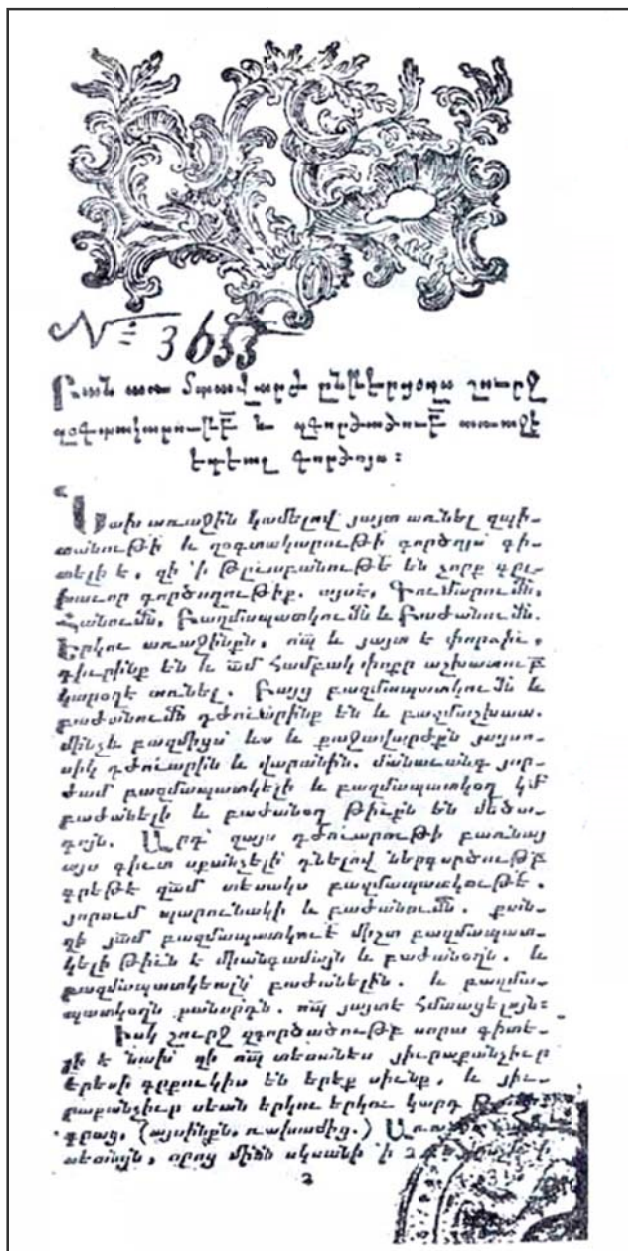 № 3633
Բան առ Մտավարժ ընթերցօղս շուրջ
զօգտակարութե՟ և զգործածութե՟ առաջի
եդեալ գործոյս։
Նախ առաջին կամելով յայտ առնել զպի֊
տանութի և զօգտակարութի գործոյս՝ գի֊
տելի է, զի ՚ի թըւաբանութե՟ են չորք գըլ֊
խաւոր գործողութիք. այսէ, Գումարումն,
Հանումն, Բազմապատկումն և Բաժանումն.
Երկու առաջինքն, որպ և յայտ է փորձիւ,
դիւրինք են և ամ համբակ փոքր աշխատութբ
կարօղէ առնել. Բայց բազմապատկումն և
բաժանումն դժուարինք են և բազմաշխատ.
մինչև բազմիցս ևս և քաջավարժքն յայսո֊
սիկ դժուարին և վարանին. մանաւանդ յոր֊
ժամ բազմապատկելի և բազմապատկօղ կմ
բաժանելի և բաժանօղ թիւքն են մեծա֊
գոյն. Արդ՝ զայս դժուարութի բառնայ
այս գիւտ սքանչելի՝ դնելով ներգործութբ
գրեթէ զամ տեսակս բազմապատկութե.
յորում պարունակի և բաժանումն. քան֊
զի յամ բազմապատկուե միշտ բազմապատ֊
կելի թիւն է միանգամայն և բաժանօղն. և
բազմապատկեալն՝ բաժանելին. և բազմա֊
պատկօղն քանորդն. որպ յայտէ հմտացելոյն։
Իսկ շուրջ զգործածութբ սորա գիտե֊
լի է նախ՝ զի որպ տեսանես յիւրաքանչիւր
երեսի գրքուկիս են երեք սիւնք, և յիւ֊
րաքանչիւր սեան երկու երկու կարգ
գրաց, (այսինքն. ռախամից.)
սեօնյն, որոյ մինն սկսանի ՚ի 2
2